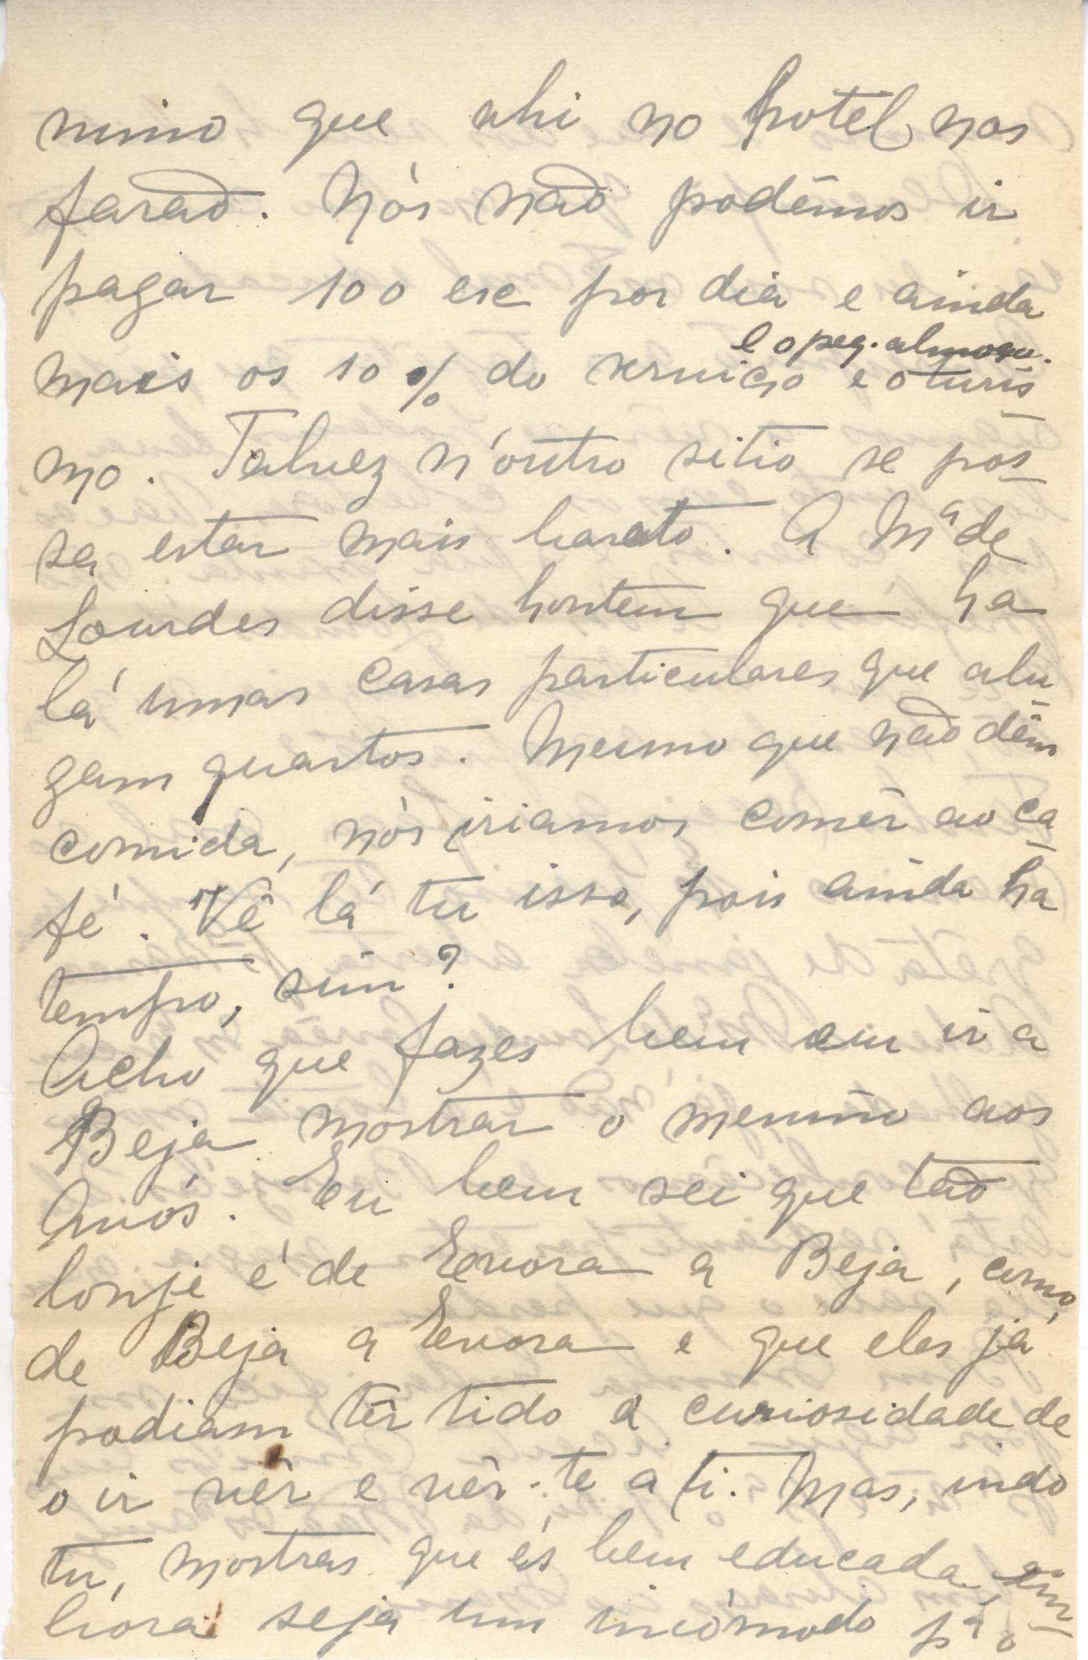 nimo que ahi no hotel nos
farão. Nós não podêmos ir
pagar 100 esc por dia e ainda
e o peq. almoço.
mais os 10 % do serviço e o turis
mo. Talvez n'outro sitio se pos
sa estar mais barato. A Mª de
Lourdes disse hontem que ha
lá umas casas particulares que alu
gam quartos. Mesmo que não dêm
comida, nós iriamos comêr ao ca
fé. Vê lá tu isso, pois ainda ha
tempo, sim?
Acho que fazes bem em ir a
Beja mostrar o menino aos
Avós. Eu bem sei que tão
lonje é de Evora a Beja, como
de Beja a Evora e que eles já
podiam têr tido a curiosidade de
o ir vêr e vêr-te a ti. Mas, indo
tu, mostras que és bem educada, em
bora seja um incómodo pª o